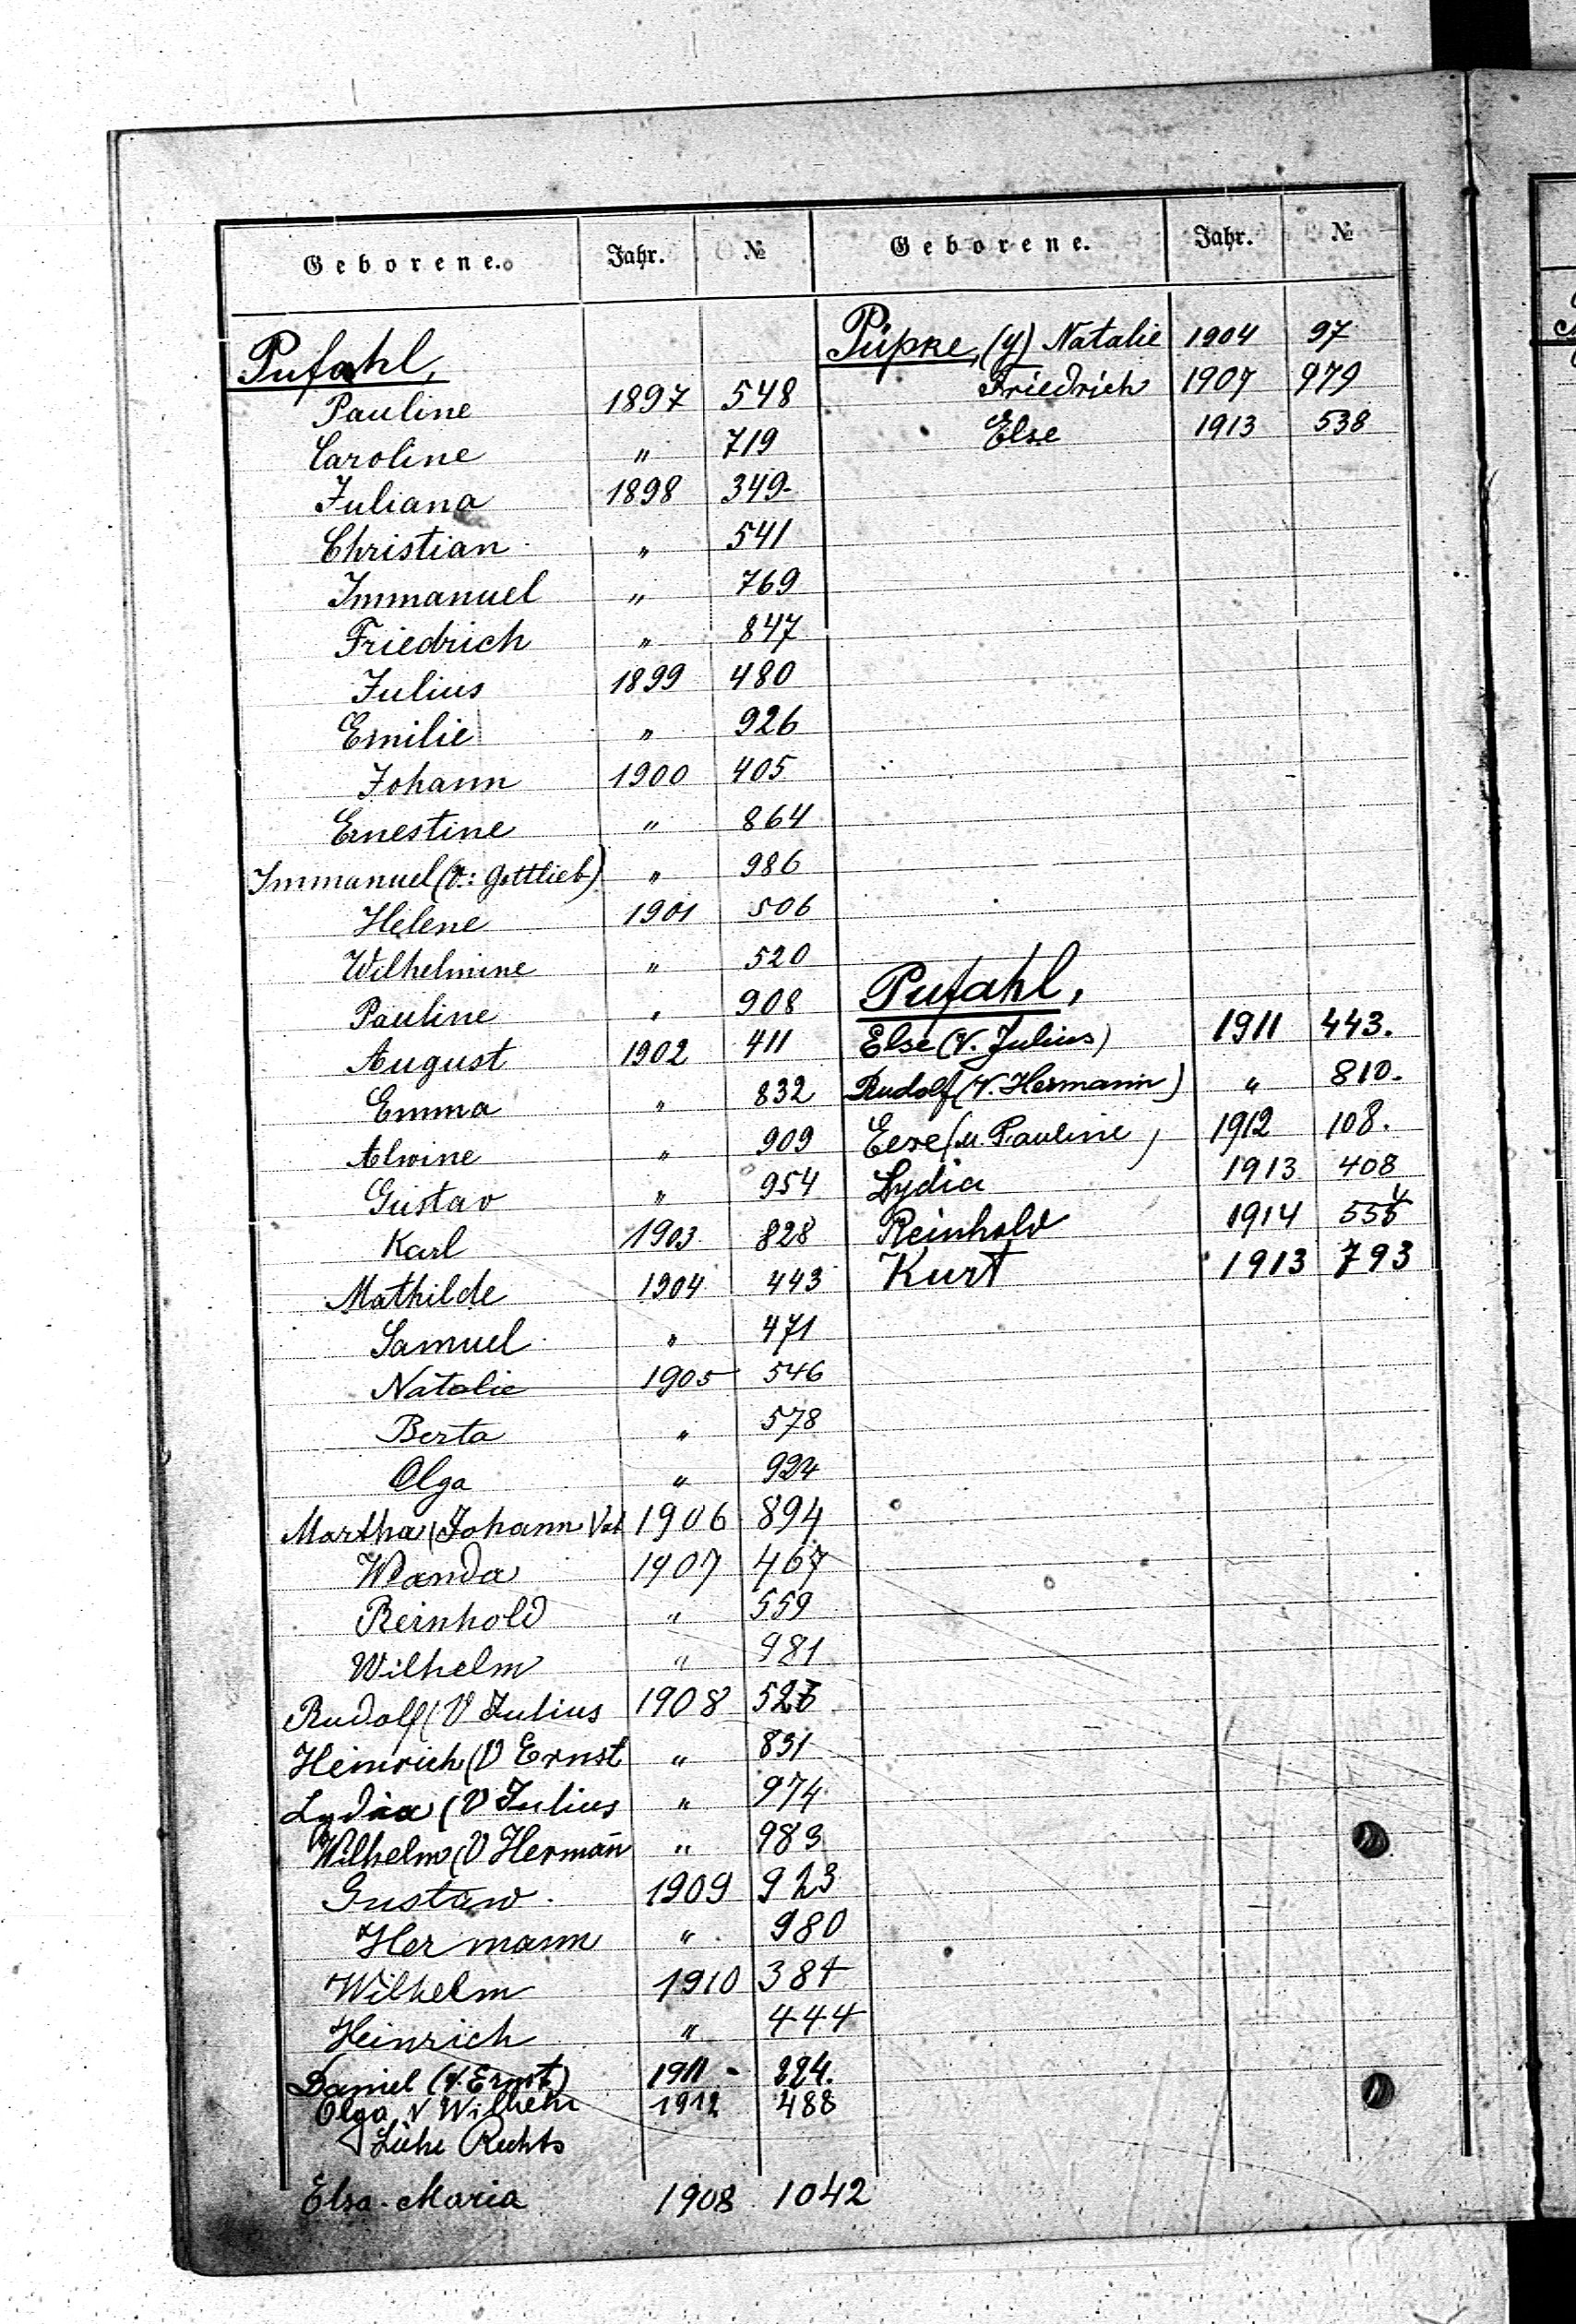 Geborene. Jahr. №
Pufahl,
Pauline 1897 548
Caroline " 719
Juliana 1898 349.
Christian " 541
Immanuel " 769
Friedrich " 847
Julius 1899 480
Emilie " 926
Johann 1900 405
Ernestine " 864
Immanuel (V.: Gottlieb) " 986
Helene 1901 506
Wilhelmine " 520
Pauline " 908
August 1902 411
Emma " 832
Alwine " 909
Gustav " 954
Karl 1903 828
Mathilde 1904 443
Samuel " 471
Natalie 1905 546
Berta " 578
Olga " 924
Martha (Johann Vat 1906 894
Wanda 1907 467
Reinhold " 559
Wilhelm " 981
Rudolf (V Julius 1908
Heinrich (V Ernst " 831
Lydia (V Julius " 974
Wilhelm (V Herman̄ " 983
Gustaw. 1909 923
Hermann " 980
Wilhelm 1910 384
Heinrich " 444
Daniel (V. Ernst) 1911 - 224.
Olga V Wilhelm 1912 488
Siehe Rechts
Elsa-Maria 1908 1042
Geborene. Jahr. №
Püpke, (y) Natalie 1904 97
Friedrich 1907 979
Else 1913 538
Pufahl,
Else (V. Julius) 1911 443.
Rudolf (V. Hermann) " 810.
(M. Pauline) 1912 108.
Lydia 1913 408
Reinhold 1914
Kurt 1913 793